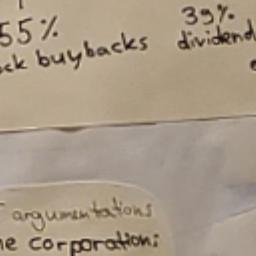 55% 39%
ck buybacks dividend
argumentations
he corporation: